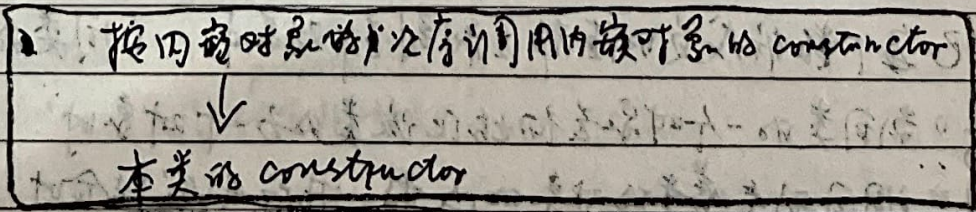 按内嵌对象的次序调用内嵌对象的 constructor
↓
本类的 constructor